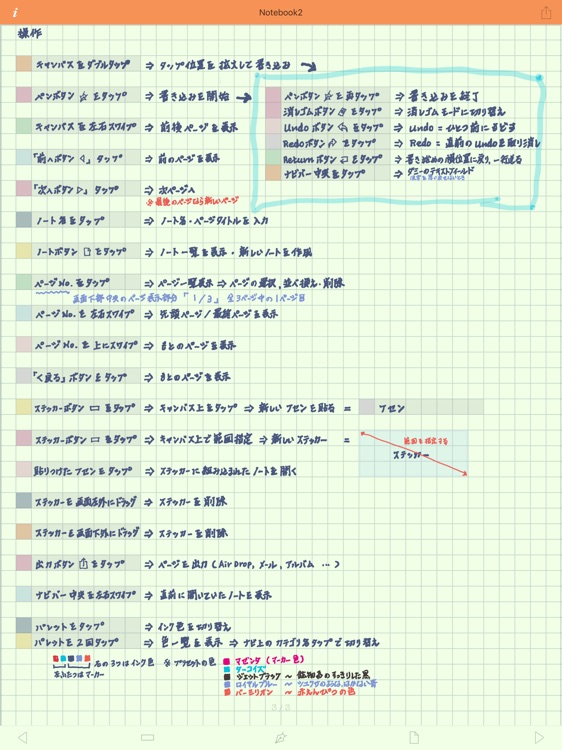 Notebook2
操作
キャンバスをダブルタップ ⇒ タップ位置を拡大して書き込み
ペンボタン をタップ ⇒ 書き込みを開始
ペンボタン を再タップ ⇒ 書き込みを終了
消しゴムボタン をタップ ⇒ 消しゴムモードに切り替え
Undoボタン をタップ ⇒ Undo = ひとつ前にもどす
Redoボタン をタップ ⇒ Redo = 直前のUndoを取り消し
Returnボタン をタップ ⇒ 書き始めの横位置に戻り、一行送る
ナビバー中央をタップ ⇒ ダミーのテキストフィールド
キャンバスを左右スワイプ ⇒ 前後ページを表示
「前へボタン ◁」タップ ⇒ 前のページを表示
「次へボタン ▷」タップ ⇒ 次ページへ
※最後のページなら新しいページ
ノート名をタップ ⇒ ノート名・ページタイトルを入力
ノートボタン をタップ ⇒ ノート一覧を表示・新しいノートを作成
ページNo.をタップ ⇒ ページ一覧表示 ⇒ ページの選択、並べ換え・削除
画面下部中央のページ表示部分「1/3」 全3ページ中の1ページ目
ページNo.を左右スワイプ ⇒ 先頭ページ/最終ページを表示
ページNo.を上にスワイプ ⇒ もとのページを表示
「く戻る」ボタンをタップ ⇒ もとのページを表示
ステッカーボタン ▭ をタップ ⇒ キャンバス上をタップ ⇒ 新しいフセンを貼る = フセン
ステッカーボタン ▭ をタップ ⇒ キャンバス上で範囲指定 ⇒ 新しいステッカー =
範囲を指定する
ステッカー
貼りつけたフセンをタップ ⇒ ステッカーに組み込まれたノートを開く
ステッカーを画面左外にドラッグ ⇒ ステッカーを削除
ステッカーを画面下外にドラッグ ⇒ ステッカーを削除
出力ボタン をタップ ⇒ ページを出力(AirDrop、メール、アルバム …)
ナビバー中央を左右スワイプ ⇒ 直前に開いていたノートを表示
パレットをタップ ⇒ インク色を切り替え
パレットを2回タップ ⇒ 色一覧を表示 ⇒ ナビ上のカテゴリ名タップで切り替え
右の3つはインク色 ※プリセットの色 マゼンタ(マーカー色)
左ふたつはマーカー
ターコイズ
ジェットブラック ~
ロイヤルブルー ~
バーミリオン ~ 赤えんぴつの色
3/3